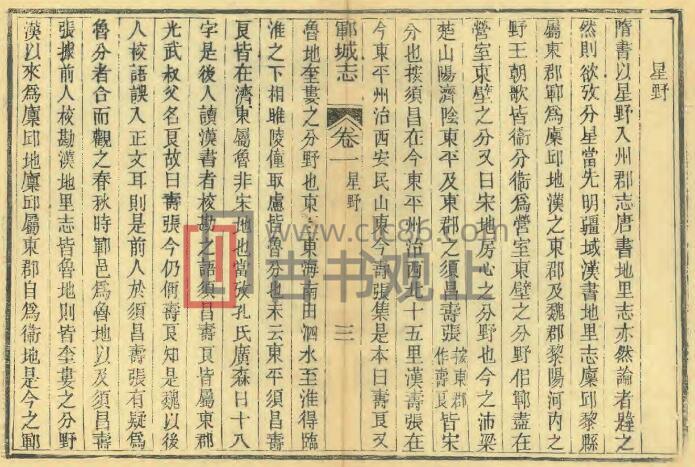 星野
隋書以星野入州郡志唐書地里志亦然論者韙之
然則欲攷分星當先明疆域漢書地里志廩邱黎縣
屬東郡鄆爲廩邱地漢之東郡及魏郡黎陽河內之
野王朝歌皆衞分衞爲營室東壁之分野但鄆盡在
營室東壁之分又曰宋地房心之分野也今之沛梁
楚山陽濟陰東平及東郡之須昌壽張按東郡作壽良皆宋
分也按須昌在今東平州治西北十五里漢壽張在
今東平州治西安民山東今壽張集是本曰壽良又
鄆城志 卷一 星野 三
魯地奎婁之分野也東 東海南由泗水至淮得臨
淮之下相睢陵僮取慮皆魯分也末云東平須昌壽
良皆在濟東屬魯非宋地也當攷孔氏廣森曰十八
字是後人讀漢書者校勘之語須昌壽良皆屬東郡
光武叔父名良故曰壽張今仍偁壽良知是魏以後
人校語誤入正文耳則是前人於須昌壽張有疑爲
魯分者合而觀之春秋時鄆邑爲魯地以及須昌壽
張據前人校勘漢地里志皆魯地則皆奎婁之分野
漢以來爲廩邱地廩邱屬東郡自爲衞地是今之鄆
www.ck86.com
古书观上